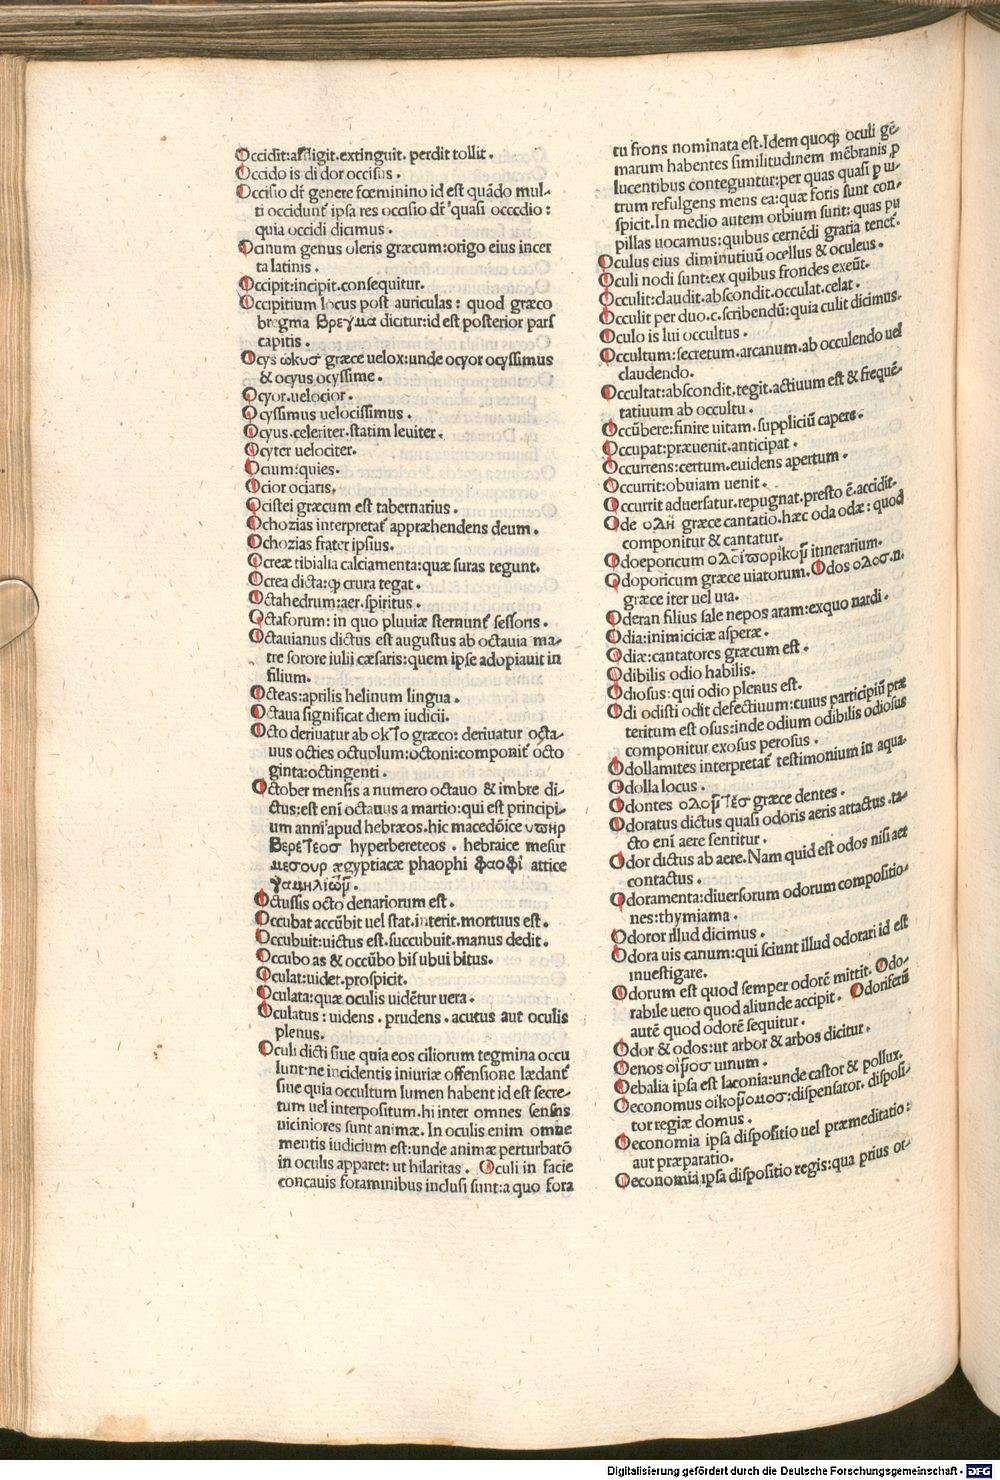 Occidit:affligit.extinguit.perdit tollit.
Occido is di dor occisus.
Occisio dr̃ genere fœminino id est quãdo mul-
ti occidunt᷑ ipsa res occisio dr̃ quasi occcdio:
quia occidi dicimus.
Ocinum genus oleris græcum:origo eius incer
ta latinis.
Occipit:incipit.consequitur.
Occipitium locus post auriculas: quod græco
bregma Βρεγμα dicitur:id est posterior pars
capitis.
Ocys ωκυσ græce uelox:unde ocyor ocyssimus
& ocyus ocyssime.
Ocyor.uelocior.
Ocyssimus uelocissimus.
Ocyus.celeriter.statim leuiter.
Ocyter uelociter.
Ocium:quies.
Ocior ociaris.
Ocistei græcum est tabernatius.
Ochozias interpretat᷑ appræhendens deum.
Ochozias frater ipsius.
Ocreæ tibialia calciamenta:quæ suras tegunt.
Ocrea dicta:ꝙ crura tegat.
Octahedrum:aer.spiritus.
Octaforum: in quo pluuiæ sternunt᷑ sessoris.
Octauianus dictus est augustus ab octauia ma-
tre sorore iulii cæsaris:quem ipse adopiauit in
filium.
Octeas:aprilis helinum lingua.
Octaua significat diem iudicii.
Octo deriuatur ab οκτο græco: deriuatur octa-
uus octies octuplum:octoni:componit᷑ octo
ginta:octingenti.
October mensis a numero octauo & imbre di-
ctus:est eni᷑ octauus a martio:qui est principi-
um anni apud hebræos.hic macedõice υπηρ
Βερετεοσ hyperbereteos. hebraice mesur
μεσουρ ægyptiacæ phaophi φαοφὶ attice
γαμηλιὼν.
Octussis octo denariorum est.
Occubat accũbit uel stat.interit.mortuus est.
Occubuit:uictus est.succubuit.manus dedit.
Occubo as & occũbo bis ubui bitus.
Oculat:uidet.prospicit.
Oculata:quæ oculis uidẽtur uera.
Oculatus: uidens. prudens. acutus aut oculis
plenus.
Oculi dicti siue quia eos ciliorum tegmina occu
lunt:ne incidentis iniuriæ offensione lædant᷑
siue quia occultum lumen habent id est secre-
tum uel interpositum.hi inter omnes sensus
uiciniores sunt animæ. In oculis enim omne
mentis iudicium est:unde animæ perturbatõ
in oculis apparet: ut hilaritas. Oculi in facie
concauis foraminibus inclusi sunt:a quo fora
tu frons nominata est.Idem quoqꝫ oculi gẽ-
marum habentes similitudinem mẽbranis ꝑ
lucentibus conteguntur:per quas quasi ꝑ ui-
trum refulgens mens ea:quæ foris sunt con-
spicit.In medio autem orbium surit: quas pu
pillas uocamus:quibus cernẽdi gratia tenet᷑.
Oculus eius diminutiuũ ocellus & oculeus.
Oculi nodi sunt:ex quibus frondes exeũt.
Occulit:claudit.abscondit.occulat.celat.
Occulit per duo.c.scribendũ:quia culit dicimus.
Oculo is lui occultus.
Occultum:secretum.arcanum.ab occulendo uel
claudendo.
Occultat:abscondit.tegit.actiuum est & frequẽ-
tatiuum ab occultu.
Occũbere:finire uitam.suppliciũ capere.
Occupat:præuenit.anticipat.
Occurrens:certum.euidens apertum.
Occurrit:obuiam uenit.
Occurrit aduersatur.repugnat.presto ẽ.accidit.
Ode οδη græce cantatio.hæc oda odæ: quod
componitur & cantatur.
Odoeporicum οδοιπορικον itinerarium.
Odoporicum græce uiatorum. Odos οδοσ.n.
græce iter uel uia.
Oderan filius sale nepos aram:exquo nardi.
Odia:inimiciciæ asperæ.
Odiæ:cantatores græcum est.
Odibilis odio habilis.
Odiosus:qui odio plenus est.
Odi odisti odit defectiuum:cuius participiũ præ
teritum est osus:inde odium odibilis odiosus
componitur exosus perosus.
Odollamites interpretat᷑ testimonium in aqua.
Odolla locus.
Odontes οδοντέσ græce dentes.
Odoratus dictus quasi odoris aeris attactus.ta-
cto eni᷑ aere sentitur.
Odor dictus ab aere. Nam quid est odos nisi aer
contactus.
Odoramenta:diuersorum odorum compositio-
nes:thymiama.
Odoror illud dicimus.
Odora uis canum:qui sciunt illud odorari id est
inuestigare.
Odorum est quod semper odorẽ mittit. Odo-
rabile uero quod aliunde accipit. Odoriferũ
autẽ quod odorẽ sequitur.
Odor & odos:ut arbor & arbos dicitur.
Oenos οἰνοσ uinum.
Oebalia ipsa est laconia:unde castor & pollux.
Oeconomus οἰκονομοσ:dispensator. disposi-
tor regiæ domus.
Oeconomia ipsa dispositio uel præmeditatio:
aut præparatio.
Oeconomia ipsa dispositio regis:qua prius or-
Digitalisierung gefördert durch die Deutsche Forschungsgemeinschaft - DFG